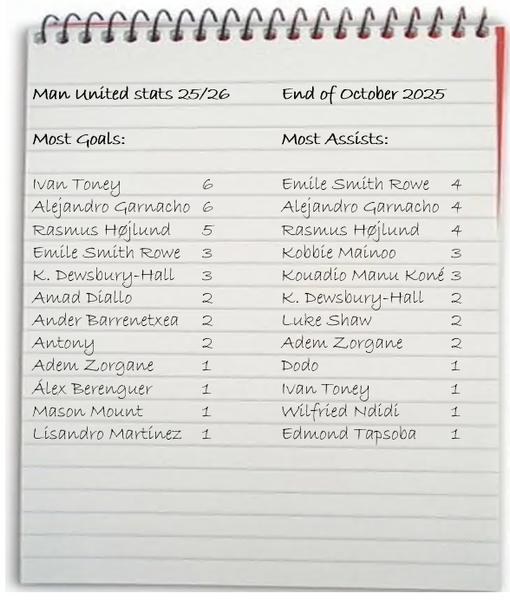 Man United stats 25/26 End of October 2025
Most Goals: Most Assists:
Ivan Toney 6 Emile Smith Rowe 4
Alejandro Garnacho 6 Alejandro Garnacho 4
Rasmus Højlund 5 Rasmus Højlund 4
Emile Smith Rowe 3 Kobbie Mainoo 3
K. Dewsbury-Hall 3 Kouadio Manu Koné 3
Amad Diallo 2 K. Dewsbury-Hall 2
Ander Barrenetxea 2 Luke Shaw 2
Antony 2 Adem Zorgane 2
Adem Zorgane 1 Dodo 1
Álex Berenguer 1 Ivan Toney 1
Mason Mount 1 Wilfried Ndidi 1
Lisandro Martínez 1 Edmond Tapsoba 1